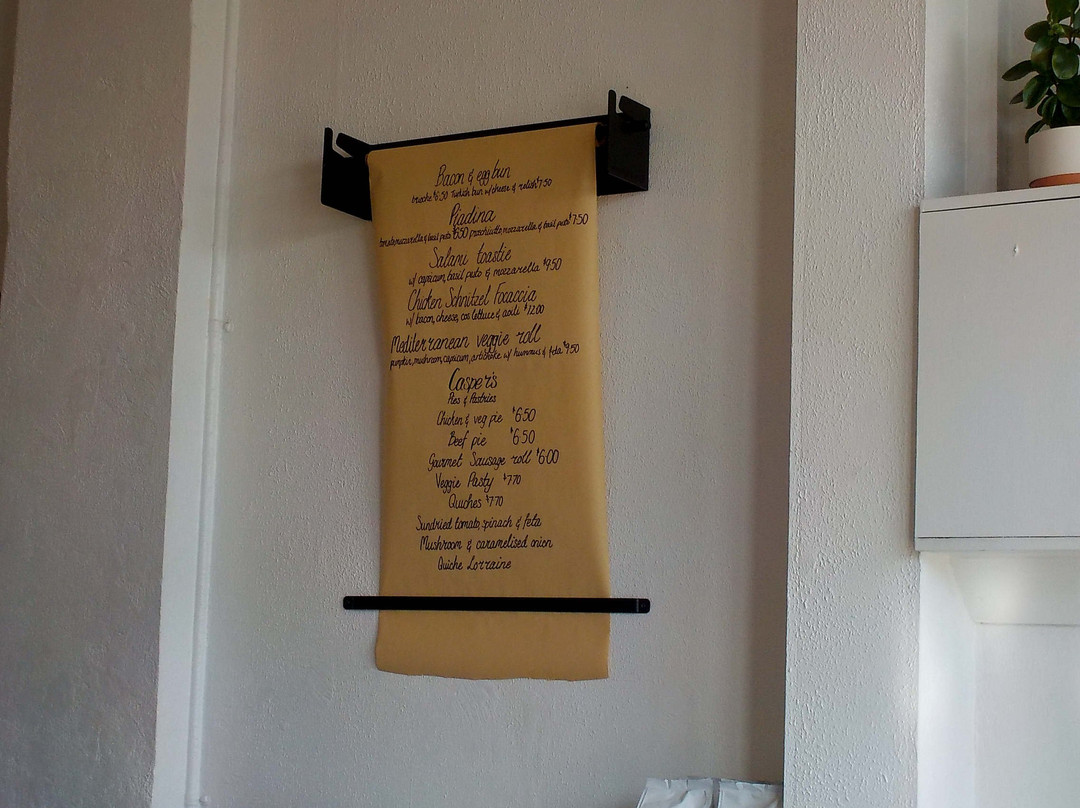 Bacon & egg bun
brioche $6.50 Turkish bun w/ cheese & relish $7.50
Piadina
tomato, mozzarella & basil pesto $6.50 proschiutto, mozzarella & basil pesto $7.50
Salami toastie
w/ capsicum, basil pesto & mozzarella $9.50
Chicken Schnitzel Foccaccia
w/ bacon, cheese, cos lettuce & aioli $12.00
Mediterranean veggie roll
pumpkin, mushroom, capsicum, artichoke w/ hummus & feta $9.50
Casper's
Pies & Pastries
Chicken & veg pie $6.50
Beef pie $6.50
Gourmet Sausage roll $6.00
Veggie Pasty $7.70
Quiches $7.70
Sundried tomato, spinach & feta
Mushroom & caramelised onion
Quiche Lorraine